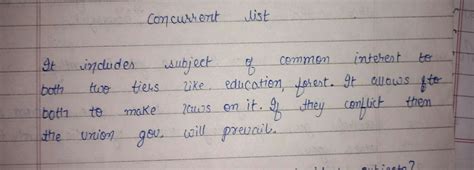 Concurrent list
It includes subject of common interest to
both two tiers like education, forest. It allows to
both to make laws on it. If they conflict then
the union gov. will prevail.